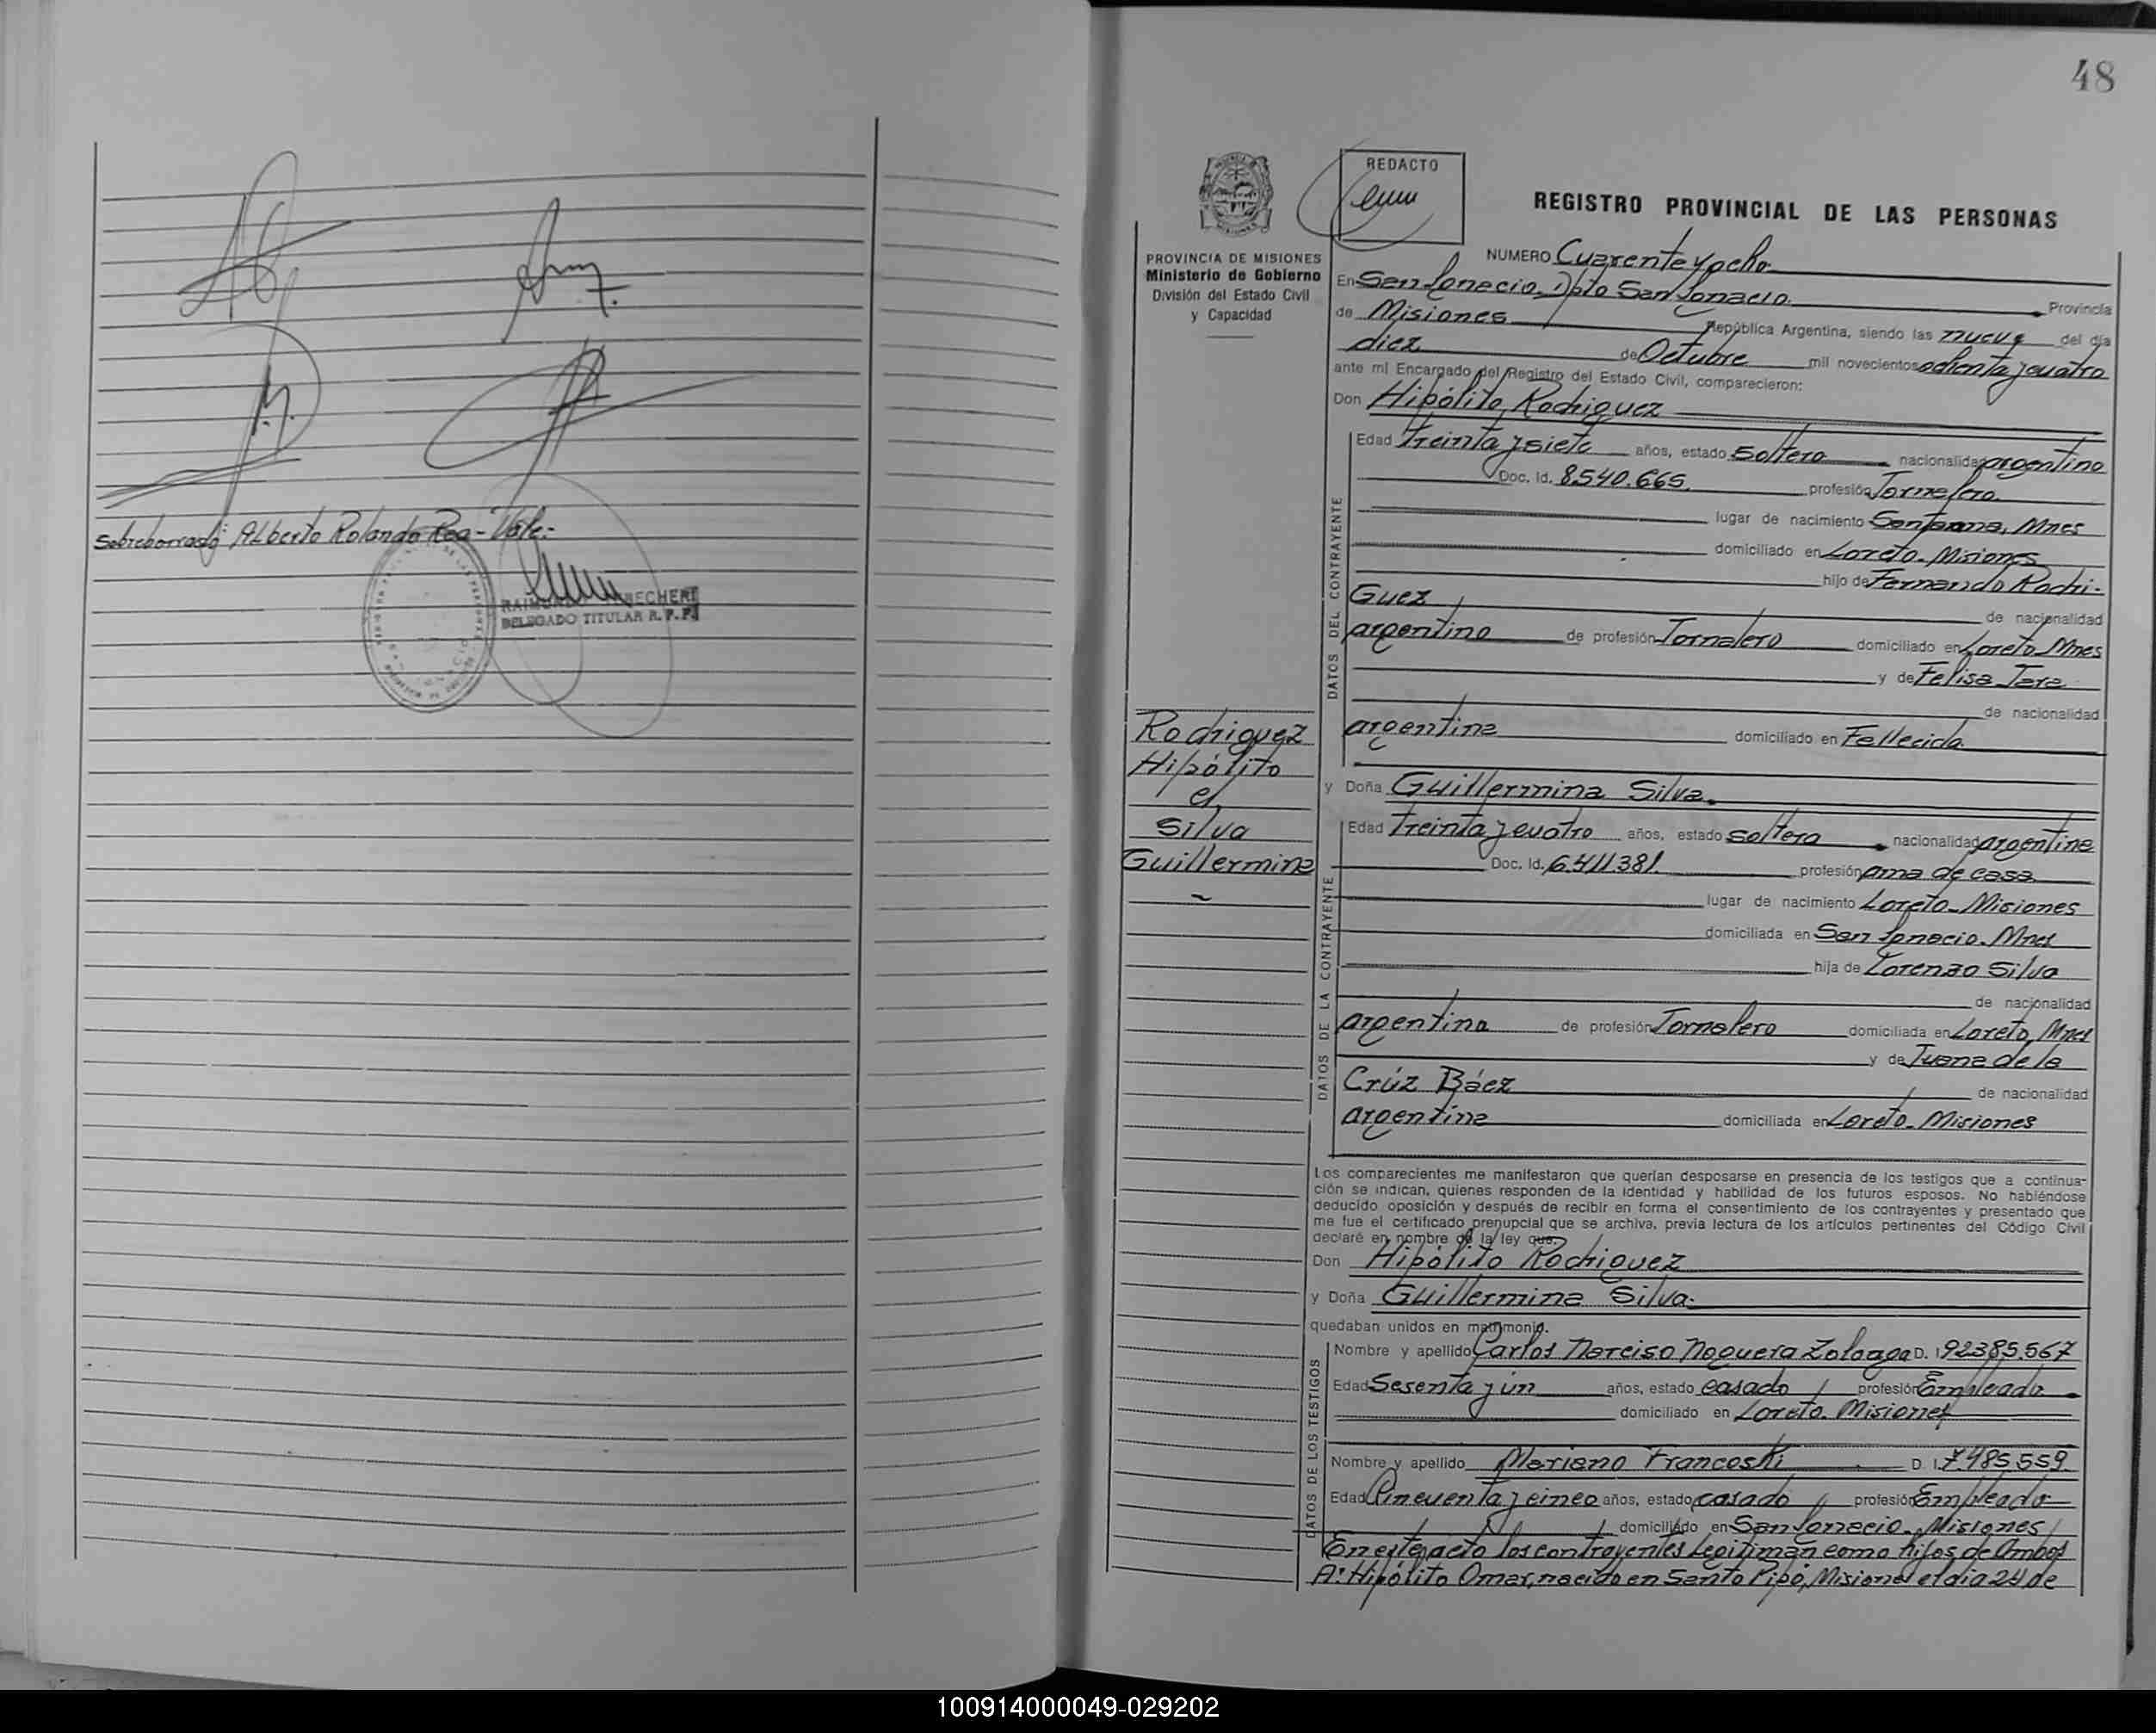 Sobreborrado: Alberto Rolando Rea - Vale:-
DELEGADO TITULAR R. P. P.
48
REDACTO
REGISTRO PROVINCIAL DE LAS PERSONAS
PROVINCIA DE MISIONES
Ministerio de Gobierno
División del Estado Civil
y Capacidad
NUMERO Cuarenta y ocho
En San Ignacio, Dpto San Ignacio Provincia
de Misiones República Argentina, siendo las nueve del día
diez de Octubre mil novecientos ochenta y cuatro
ante mí Encargado del Registro del Estado Civil, comparecieron:
Don Hipólito Rodriguez
DATOS DEL CONTRAYENTE
Edad treinta y siete años, estado soltero nacionalidad argentino
Doc. Id. 8.540.665. profesión Jornalero
lugar de nacimiento Santa ana, Mnes
domiciliado en Loreto - Misiones
hijo de Fernando Rodri-
Guez de nacionalidad
argentino de profesión Jornalero domiciliado en Loreto Mnes
y de Felisa Jara
de nacionalidad
argentina domiciliado en Fallecida
Rodriguez
Hipólito
c/
Silva
Guillermina
y Doña Guillermina Silva
DATOS DE LA CONTRAYENTE
Edad treinta y cuatro años, estado soltera nacionalidad argentina
Doc. Id. 6.411.381. profesión ama de casa
lugar de nacimiento Loreto - Misiones
domiciliada en San Ignacio. Mnes
hija de Lorenzo Silva
de nacionalidad
argentina de profesión Jornalero domiciliada en Loreto, Mnes
y de Juana de la
Crúz Báez de nacionalidad
argentina domiciliada en Loreto - Misiones
Los comparecientes me manifestaron que querían desposarse en presencia de los testigos que a continua-
ción se indican, quienes responden de la identidad y habilidad de los futuros esposos. No habiéndose
deducido oposición y después de recibir en forma el consentimiento de los contrayentes y presentado que
me fue el certificado prenupcial que se archiva, previa lectura de los artículos pertinentes del Código Civil
declaré en nombre de la ley que:
Don Hipólito Rodriguez
y Doña Guillermina Silva.
quedaban unidos en matrimonio.
DATOS DE LOS TESTIGOS
Nombre y apellido Carlos Narciso Noguera Zolaga D. I 92385.567
Edad Sesenta y un años, estado casado profesión Empleado
domiciliado en Loreto. Misiones
Nombre y apellido Mariano Francoski D. I. 7.485.559.
Edad Cincuenta y cinco años, estado casado profesión Empleado
domiciliado en San Ignacio - Misiones
En este acto los contrayentes Legitiman como hijos de Ambos
A: Hipólito Omar, nacido en Santo Pipó, Misiones el dia 24 de
100914000049-029202